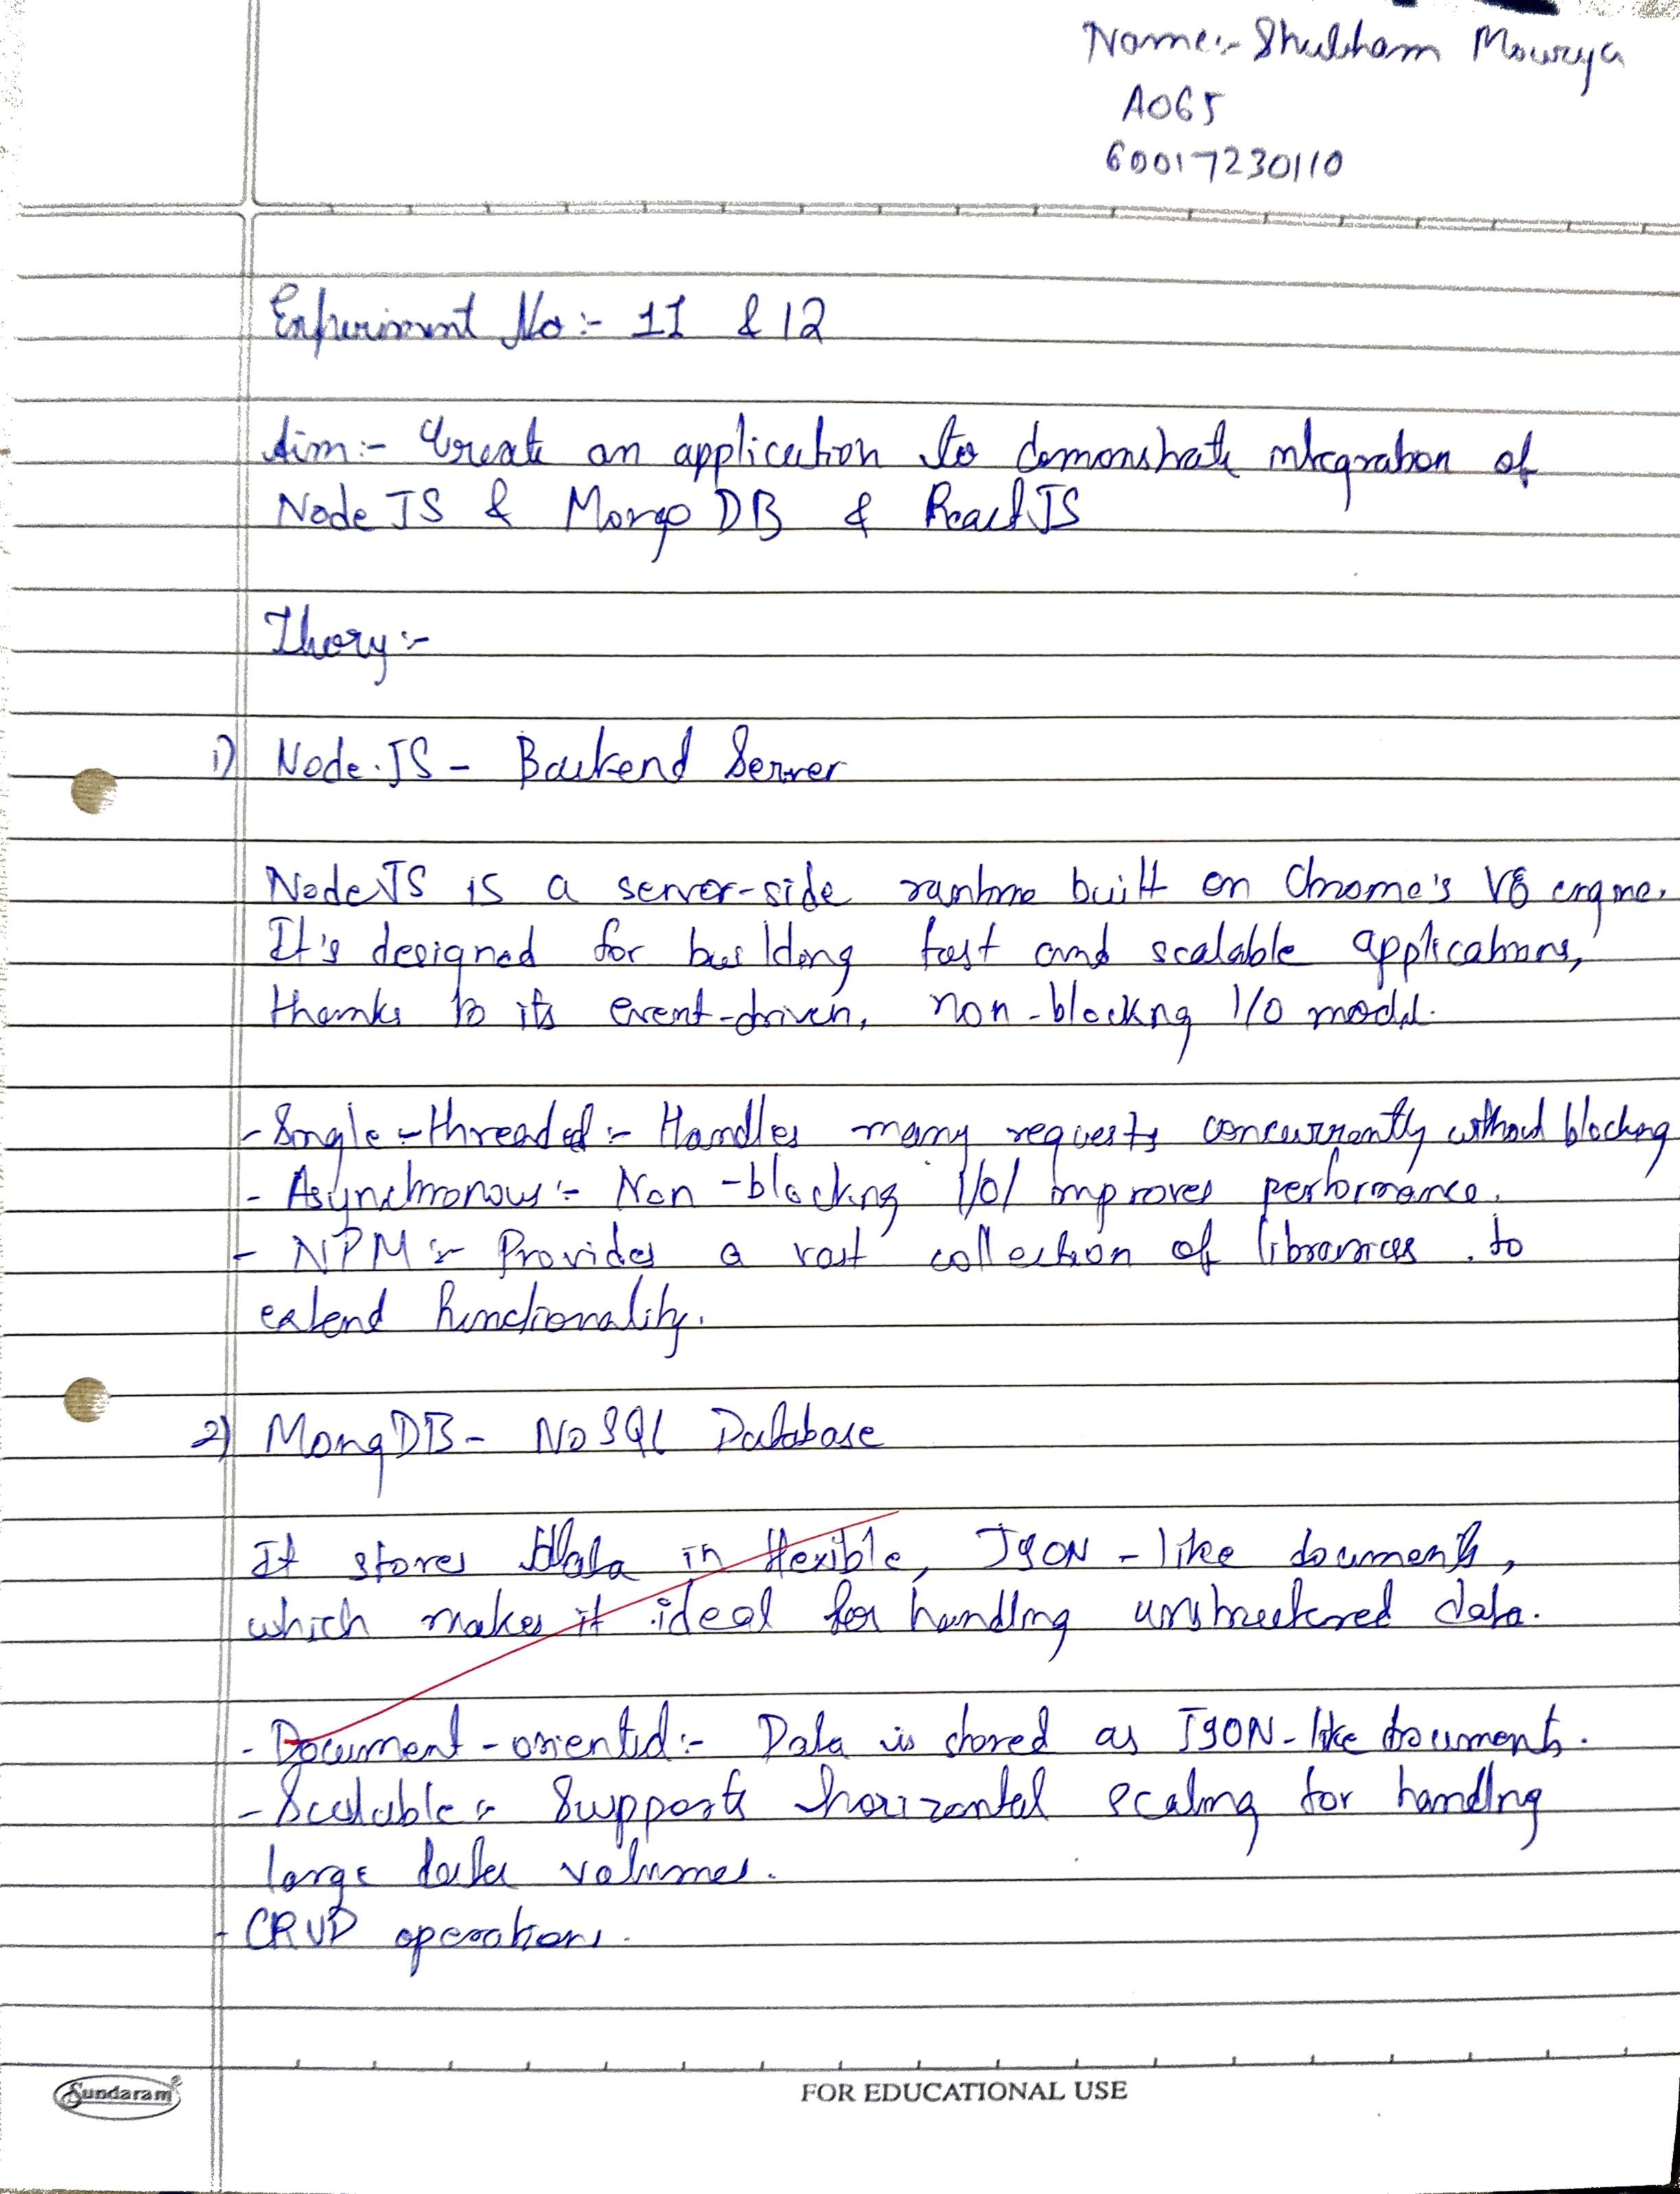 Name:- Shubham Mourya
A065
60017230110
Experiment No:- 11 & 12
Aim:- Create an application to demonstrate integration of
Node JS & Mongo DB & React JS
Theory:-
1) Node.JS - Backend Server
NodeJS is a server-side runtime built on Chrome's V8 engine.
It's designed for building fast and scalable applications,
thanks to its event-driven, non-blocking I/O model.
- Single-threaded:- Handles many requests concurrently without blocking
- Asynchronous:- Non-blocking I/O/ improves performance.
- NPM:- Provides a vast collection of libraries to
extend functionality.
2) MongDB- NoSQL Database
It stores data in flexible, JSON-like documents,
which makes it ideal for handling unstructured data.
- Document-oriented:- Data is stored as JSON-like documents.
- Scalable:- Supports horizontal scaling for handling
large data volumes.
- CRUD operations.
Sundaram
FOR EDUCATIONAL USE